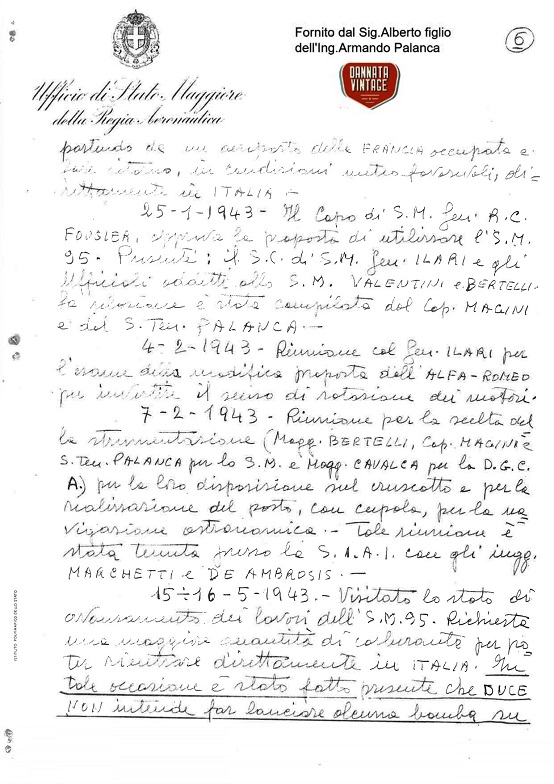 Fornito dal Sig.Alberto figlio
dell'Ing.Armando Palanca
6
DANNATA
VINTAGE
Ufficio di Stato Maggiore
della Regia Aeronautica
partendo da un aeroporto della FRANCIA occupata e
fare ritorno, in condizioni meteo favorevoli, di=
rettamente in ITALIA -
25-1-1943- Il Capo di S.M. Gen. R.C.
FOUGIER, approva la proposta di utilizzare l'S.M.
95. Presenti: il S.C. di S.M. Gen. ILARI e gli
Ufficiali addetti allo S.M. VALENTINI e BERTELLI.
La relazione è stata compilata dal Cap. MAGINI
e dal S.Ten. PALANCA. -
4-2-1943- Riunione col Gen. ILARI per
l'esame della modifica proposta dall'ALFA-ROMEO
per invertire il senso di rotazione dei motori.
7-2-1943- Riunione per la scelta del
la strumentazione (Magg. BERTELLI, Cap. MAGINI e
S.Ten. PALANCA per lo S.M. e Magg. CAVALCA per la D.G.C.
A.) per la loro disposizione sul cruscotto e per la
realizzazione del posto, con cupola, per la na=
vigazione astronomica. - Tale riunione è
stata tenuta presso la S.I.A.I. con gli ingg.
MARCHETTI e DE AMBROSIS. -
15÷16-5-1943. - Visitato lo stato di
avanzamento dei lavori dell'S.M.95. Richiesta
una maggiore quantità di carburante per po=
ter rientrare direttamente in ITALIA. In
tale occasione è stato fatto presente che DUCE
NON intende far lanciare alcuna bomba su
ISTITUTO POLIGRAFICO DELLO STATO